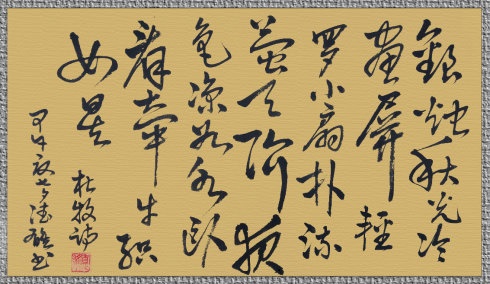 銀烛秋光冷
畫屏輕
罗小扇扑流
萤天阶夜
色凉如水卧
看牵牛织
女星
杜牧诗
甲午 书